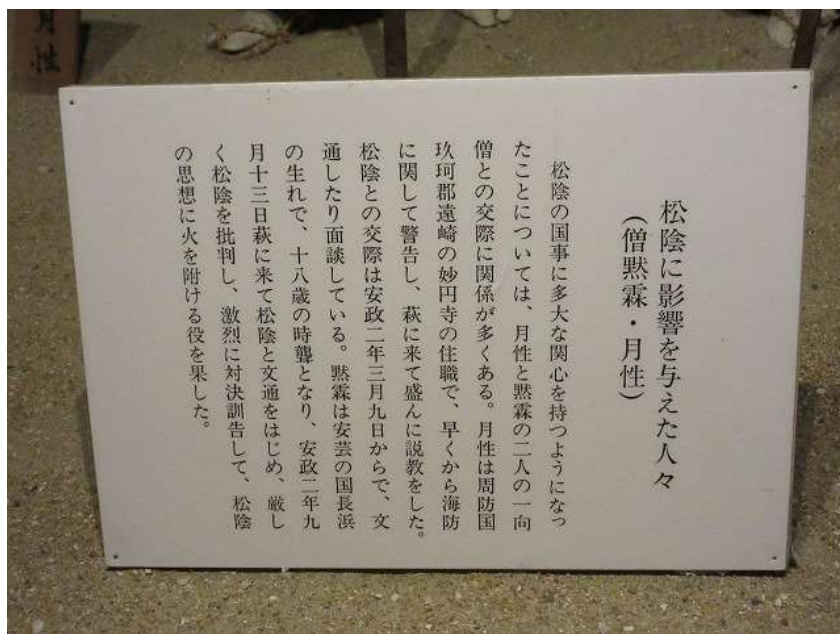 松陰に影響を与えた人々
(僧黙霖・月性)
松陰の国事に多大な関心を持つようになっ
たことについては、月性と黙霖の二人の一向
僧との交際に関係が多くある。月性は周防国
玖珂郡遠崎の妙円寺の住職で、早くから海防
に関して警告し、萩に来て盛んに説教をした。
松陰との交際は安政二年三月九日からで、文
通したり面談している。黙霖は安芸の国長浜
の生れで、十八歳の時聾となり、安政二年九
月十三日萩に来て松陰と文通をはじめ、厳し
く松陰を批判し、激烈に対決訓告して、松陰
の思想に火を附ける役を果した。
月性